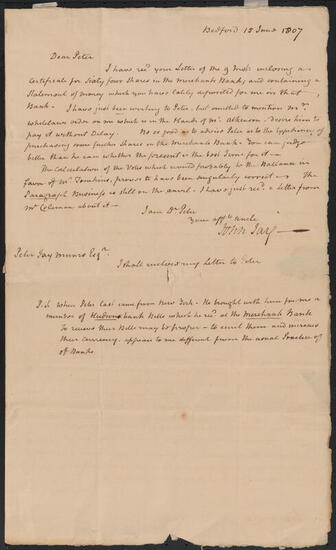 Bedford 15 June 1807
Dear Peter
I have recd. your Letter of the 9 Inst. enclosing a
Certificate for Sixty four Shares in the Merchants Bank, and containing a
Statement of money which you have lately deposited for me in that
Bank - I have just been writing to Peter, but omitted to mention Mr.
Whitelaws order on me which is in the Hands of Mr. Atkinson. desire him to
pay it without Delay. Be so good as to advise Peter as to the expediency of
purchasing some further Shares in the Merchants Bank - You can judge
better than he can whether the present is the best Time for it -
The Calculation of the Votes which would probably be the Balance in
favor of Mr. Tomkins, proves to have been singularly correct - The
Paragraph Business is still on the anvil. I have just recd. a letter from
Mr. Coleman about it -
I am Dr. Peter
your affte. uncle
John Jay
Peter Jay Munro Esqr.
I shall enclose my Letter to Peter
P.S. When Peter last came from New York - He brought with him for me a
number of Hudson bank Bills which he recd. at the Merchants Bank
To receive their Bills may be proper - to emit them and increase
their currency, appears to me different from the usual Practice of
of Banks